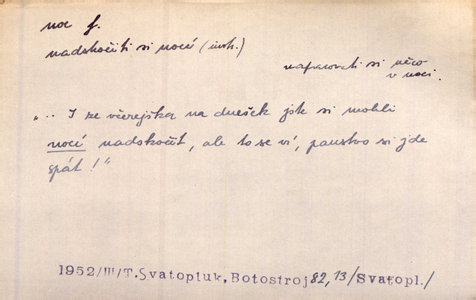 noc f.
nadskočiti si nocí (instr.)
napracovati si něco
v noci.
„.. I ze včerejška na dnešek jste si mohli
nocí nadskočit, ale to se ví, panstvo si jde
spát!“
1952/III/T.Svatopluk, Botostroj 82, 13/Svatopl./